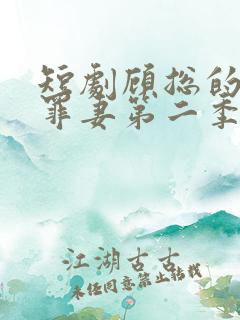 短劇顾总的
罪妻第二季
江湖古古
未经同意禁止转载